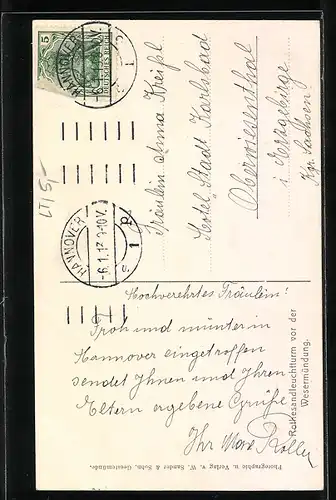 5
DEUTSCHES REICH
HANNOVER
-6.
1
HANNOVER
-6.1.12.9-10V.
S 1 p
LT/5,-
Fräulein Anna Kreißl
Hotel „Stadt Karlsbad
Oberwiesenthal
i. Erzgebirge
Kgr. Sachsen.
Hochverehrtes Fräulein!
Froh und munter in
Hannover eingetroffen
sendet Ihnen und Ihren
Eltern ergebene Grüße
Ihr Max
Rothesandleuchtturm vor der
Wesermündung.
Photographie u. Verlag v. W. Sander & Sohn, Geestemünde.